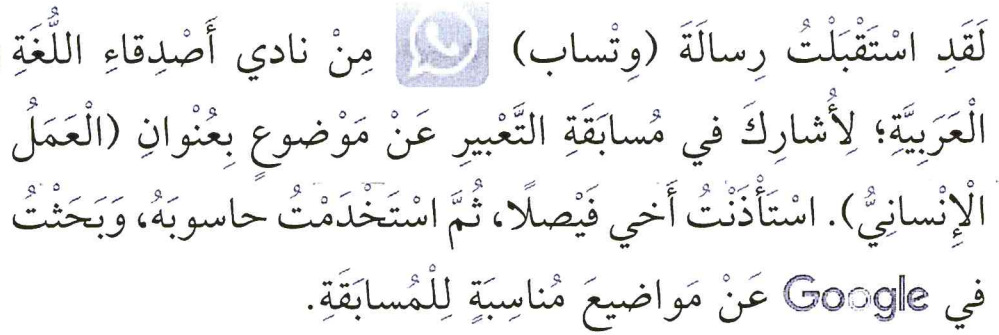 لَقَدِ اسْتَقْبَلْتُ رِسالَةَ (وِتْساب) مِنْ نادي أَصْدِقاءِ اللُّغَةِ
الْعَرَبِيَّةِ؛ لِأُشارِكَ في مُسابَقَةِ التَّعْبيرِ عَنْ مَوْضوعٍ بِعُنْوانِ (الْعَمَلُ
الْإِنْسانِيُّ). اسْتَأْذَنْتُ أَخي فَيْصلًا، ثُمَّ اسْتَخْدَمْتُ حاسوبَهُ، وَبَحَثْتُ
في Google عَنْ مَواضيعَ مُناسِبَةٍ لِلْمُسابَقَةِ.